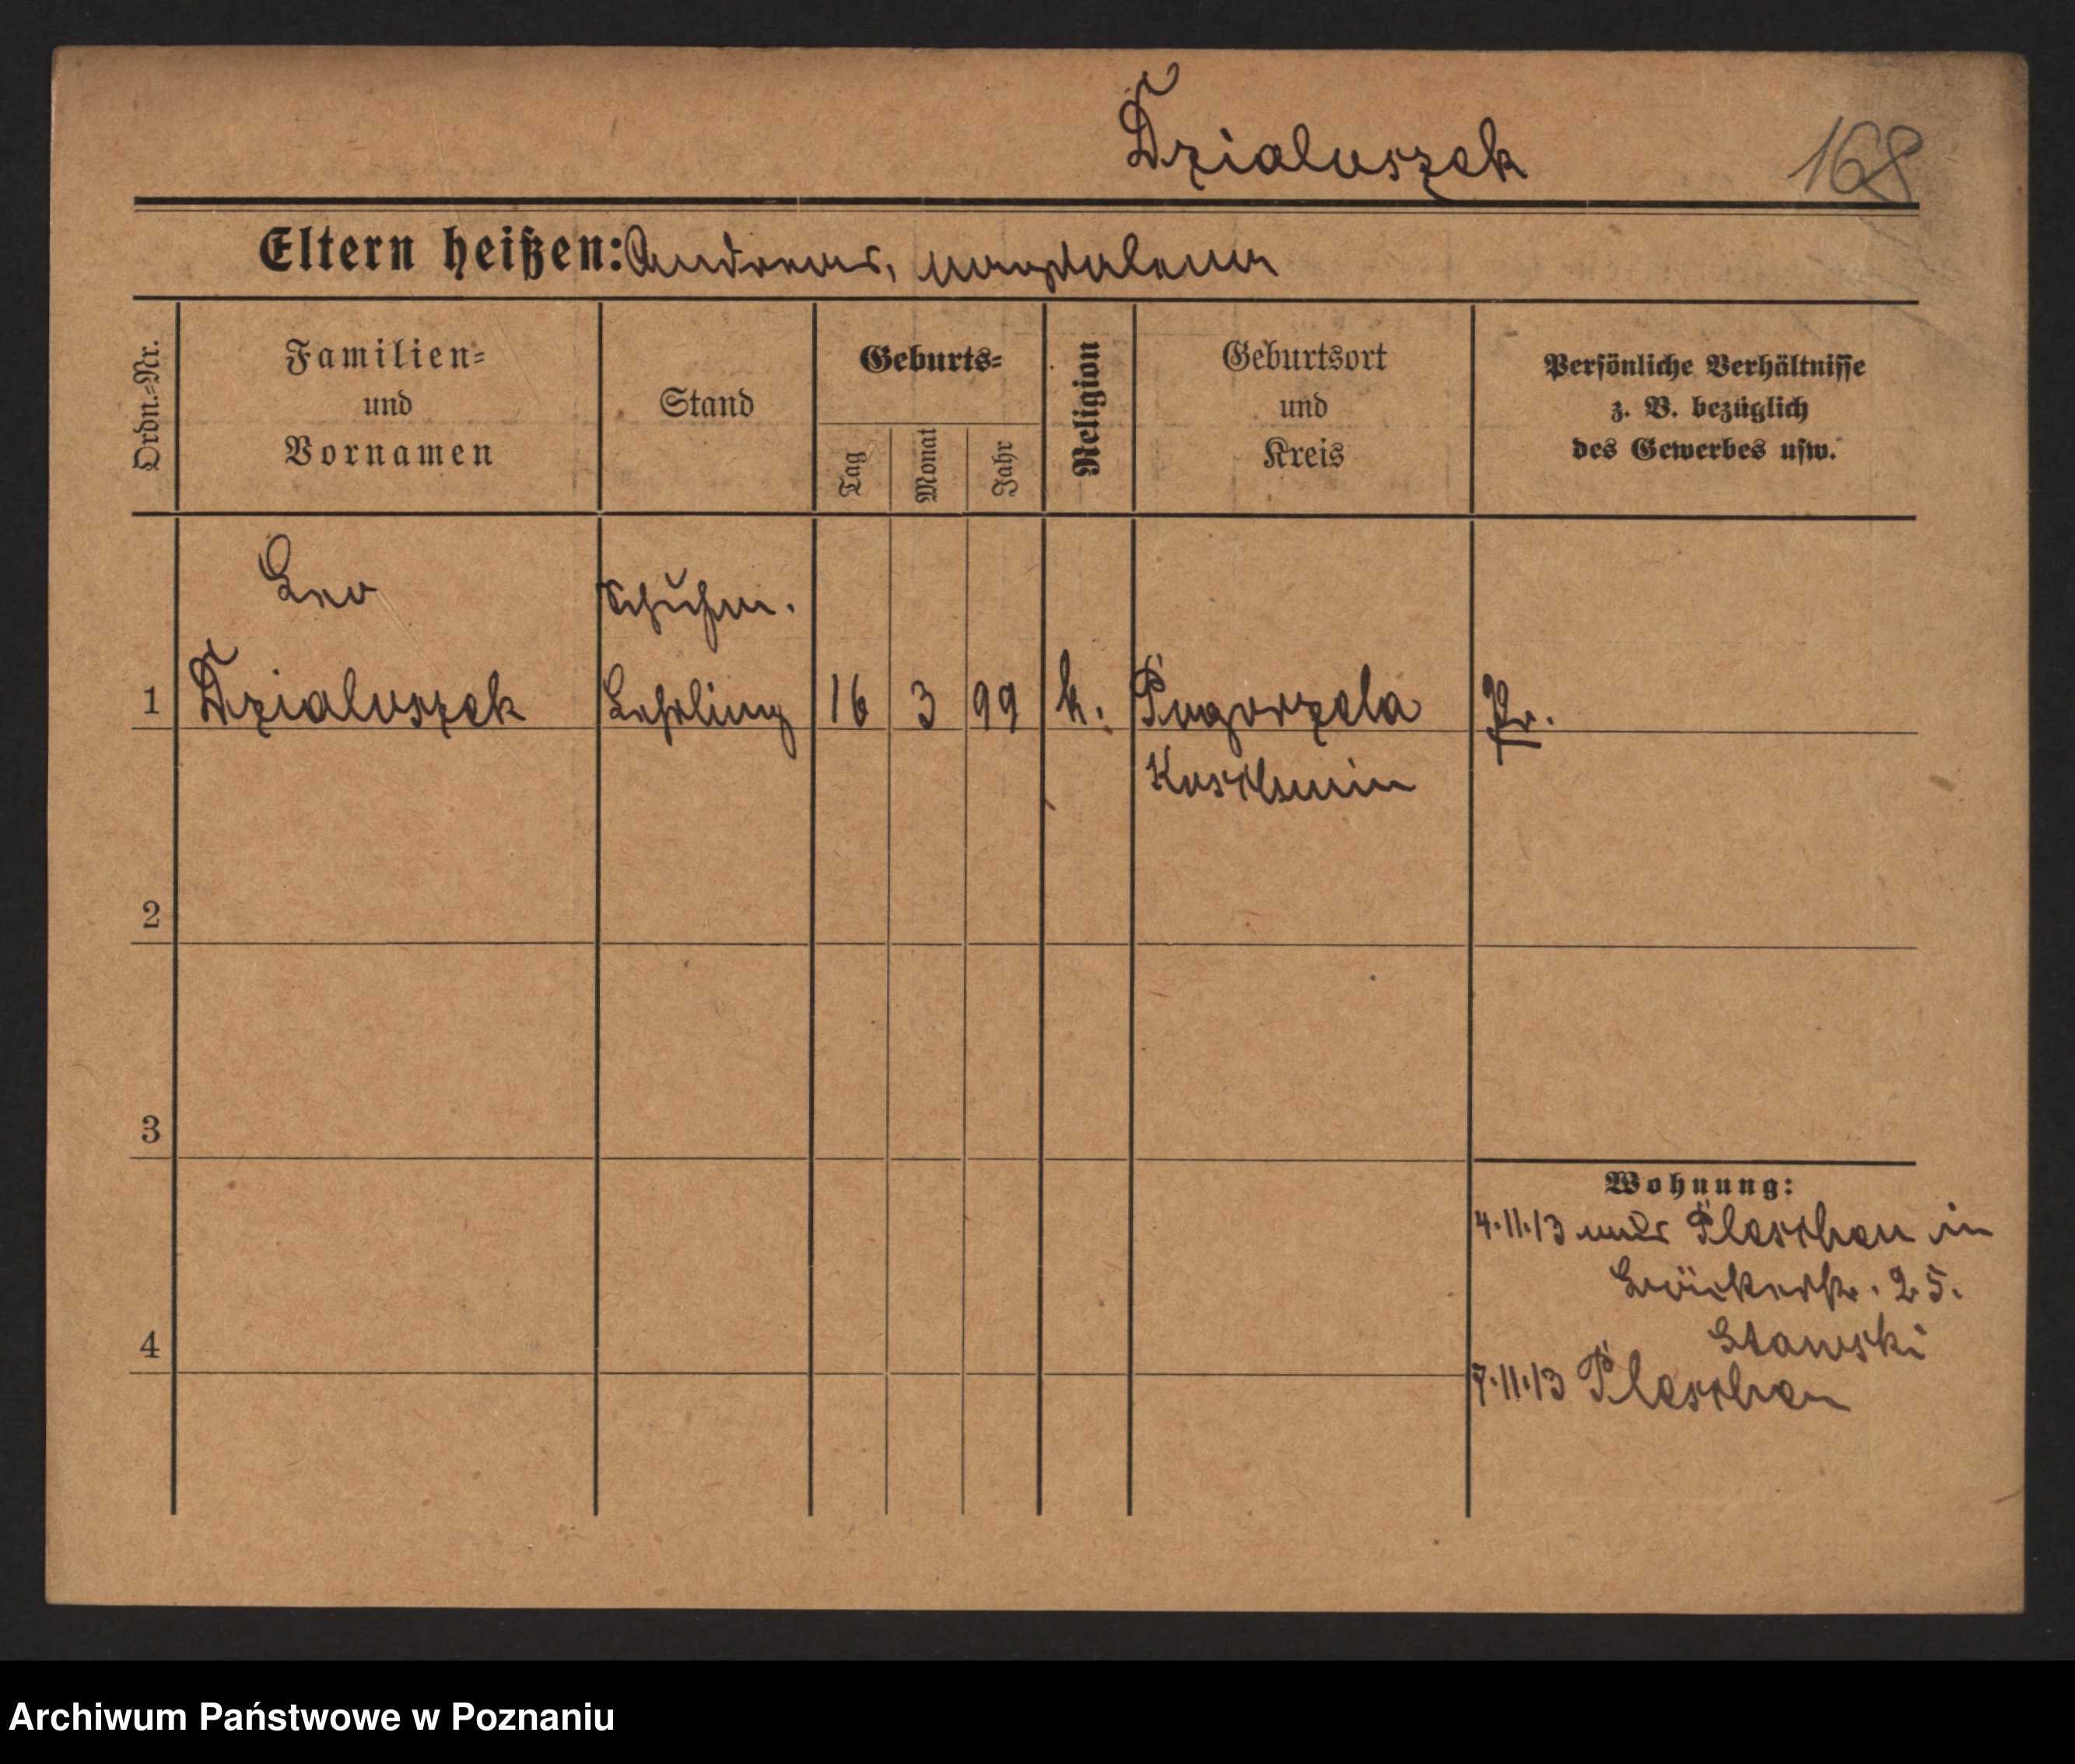 Dzialuszek
168
Eltern heißen: Andreas, Magdalena
Ordn.=Nr.
Familien=
und
Vornamen
Stand
Geburts=
Tag
Monat
Jahr
Religion
Geburtsort
und
Kreis
Persönliche Verhältnisse
z. B. bezüglich
des Gewerbes usw.
Leo
Schuhm.
1 Dzialuszek Lehrling 16 3 99 k. Pogorzela Pr.
Koschmin
2
3
Wohnung:
4.11.13 aus Pleschen in
25.
Stawski
4
7.11.13 Pleschen
Archiwum Państwowe w Poznaniu